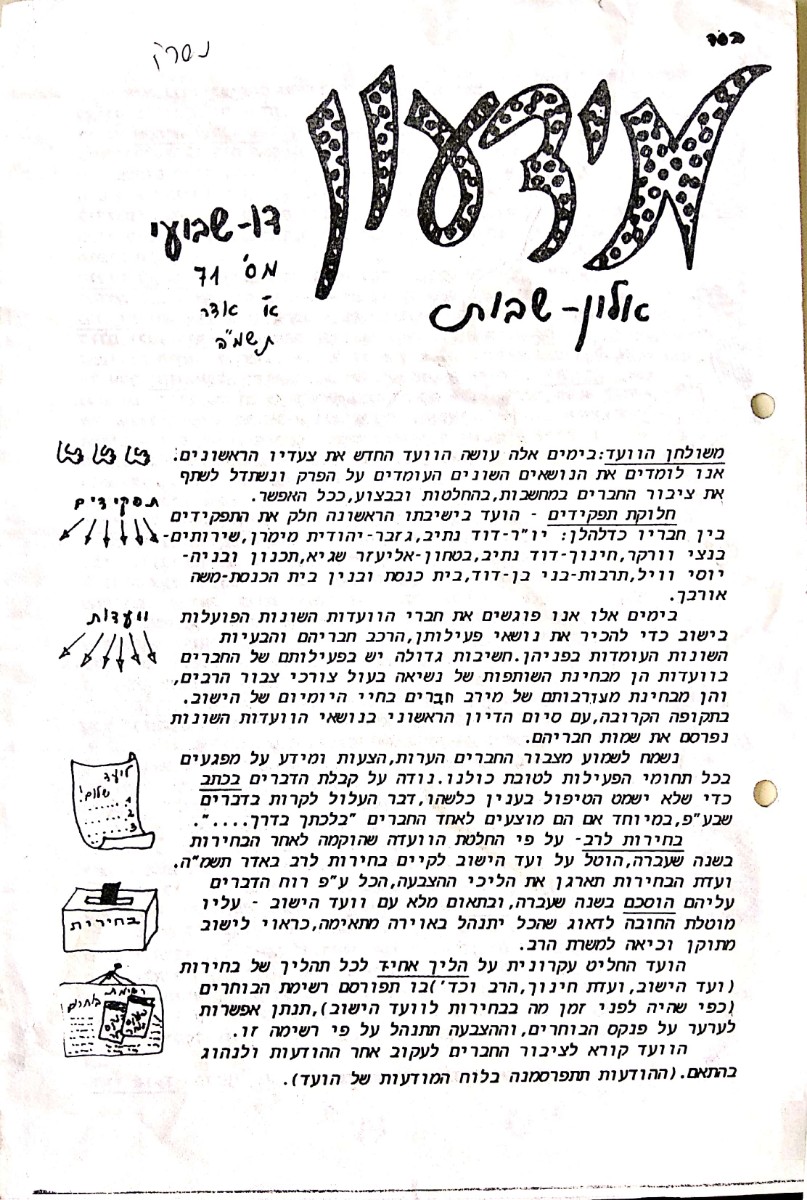 בסד
נסרק
מידעון
אלון-שבות
דו-שבועי
מס' 71
א' אדר
תשמ"ה
משולחן הוועד:בימים אלה עושה הוועד החדש את צעדיו הראשונים.
אנו לומדים את הנושאים השונים העומדים על הפרק ונשתדל לשתף
את ציבור החברים במחשבות,בהחלטות ובבצוע,ככל האפשר.
תפקידים
חלוקת תפקידים - הועד בישיבתו הראשונה חלק את התפקידים
בין חבריו כדלהלן: יו"ר-דוד נתיב,גזבר-יהודית מימרן,שירותים-
בנצי וורקר,חינוך-דוד נתיב,בטחון-אליעזר שגיא,תכנון ובניה-
יוסי וויל,תרבות-בני בן-דוד,בית כנסת ובנין בית הכנסת-משה
אורבך.
וועדות
בימים אלו אנו פוגשים את חברי הוועדות השונות הפועלות
בישוב כדי להכיר את נושאי פעילותן,הרכב חבריהם והבעיות
השונות העומדות בפניהן.חשיבות גדולה יש בפעילותם של החברים
בוועדות הן מבחינת השותפות של נשיאה בעול צורכי צבור הרבים,
והן מבחינת מעורבותם של מירב חברים בחיי היומיום של הישוב.
בתקופה הקרובה,עם סיום הדיון הראשוני בנושאי הוועדות השונות
נפרסם את שמות חבריהם.
ליעד
שלום!
1
2
3
נשמח לשמוע מצבור החברים הערות,הצעות ומידע על מפגעים
בכל תחומי הפעילות לטובת כולנו.נודה על קבלת הדברים בכתב
כדי שלא ישמט הטיפול בענין כלשהו,דבר העלול לקרות בדברים
שבע"פ,במיוחד אם הם מוצעים לאחד החברים "בלכתך בדרך....".
בחירות לרב- על פי החלטת הוועדה שהוקמה לאחר הבחירות
בשנה שעברה,הוטל על ועד הישוב לקיים בחירות לרב באדר תשמ"ה.
ועדת הבחירות תארגן את הליכי ההצבעה,הכל ע"פ רוח הדברים
עליהם הוסכם בשנה שעברה,ובתאום מלא עם וועד הישוב - עליו
מוטלת החובה לדאוג שהכל יתנהל באוירה מתאימה,כראוי לישוב
מתוקן וכיאה למשרת הרב.
בחירות
הועד החליט עקרונית על הליך אחיד לכל תהליך של בחירות
(ועד הישוב,ועדת חינוך,הרב וכד')בו תפורסם רשימת הבוחרים
(כפי שהיה לפני זמן מה בבחירות לוועד הישוב),תנתן אפשרות
לערער על פנקס הבוחרים,וההצבעה תתנהל על פי רשימה זו.
רשימת
הוועד קורא לציבור החברים לעקוב אחר ההודעות ולנהוג
בהתאם.(ההודעות תתפרסמנה בלוח המודעות של הועד).